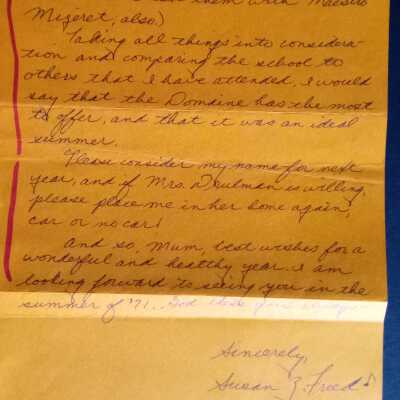 them with Maestro
Mizeret, also.)
Taking all things into considera-
tion and comparing the school to
others that I have attended, I would
say that the Domaine has the most
to offer, and that it was an ideal
summer.
Please consider my name for next
year, and if Mrs. is willing,
please place me in her home again,
car or no car!
And so, Mum, best wishes for a
wonderful and healthy year. I am
looking forward to seeing you in the
summer of '71. God bless you always.
Sincerely,
Susan Z. Freed